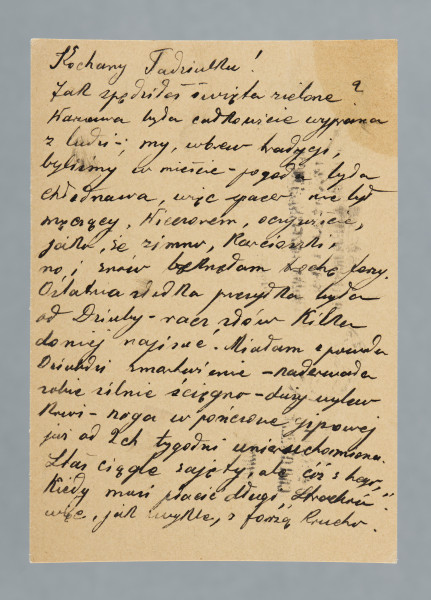 Kochany Tadziulku!
Jak spędziłeś święta zielone?
Warszawa była całkowicie wyprana
z ludzi-, my, wbrew tradycji,
byliśmy w mieście - pogoda była
chłodnawa, więc spacer nie był
męczący. Wieczorem, oczywiście,
jako, że zimno,
no i znów będę trochę
Ostatnia słodka była
od Dziuby - racz słów Kilka
do niej napisać. Miałam z powodu
Dziubdzi zmartwienie - naderwała
sobie silnie ścięgno - duży wylew
krwi - noga w pończosze gipsowej
już od 2ch tygodni unieruchomiona.
Staś ciągle zajęty, ale cóż z tego,
kiedy musi płacić długi
więc, jak zwykle, z forsą krucho.